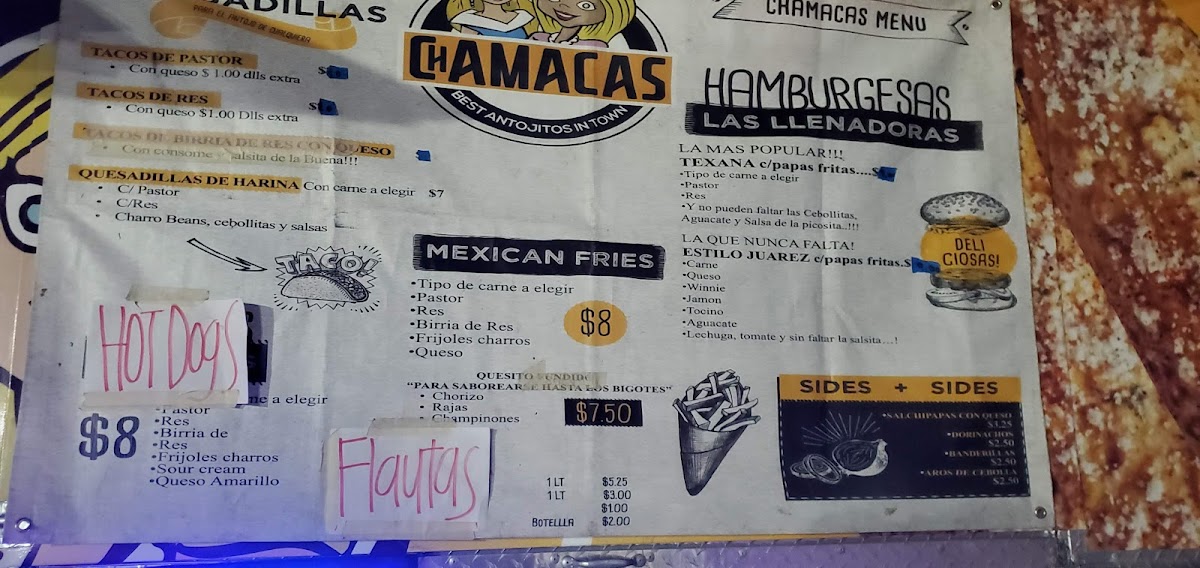 ADILLAS
PARA EL ANTOJO DE CUALQUIERA
TACOS DE PASTOR
• Con queso $ 1.00 dlls extra
TACOS DE RES
• Con queso $1.00 Dlls extra
TACOS DE BIRRIA DE RES CON QUESO
• Con consome salsita de la Buena!!!
QUESADILLAS DE HARINA Con carne a elegir $7
• C/ Pastor
• C/Res
• Charro Beans, cebollitas y salsas
TACO!
HOT DOgS
$8
ne a elegir
Pastor
•Res
•Birria de
•Res
•Frijoles charros
•Sour cream
•Queso Amarillo
CHAMACAS
BEST ANTOJITOS IN TOWN
MEXICAN FRIES
•Tipo de carne a elegir
•Pastor
•Res
•Birria de Res
•Frijoles charros
•Queso
$8
QUESITO FUNDIDO
“PARA SABOREARSE HASTA LOS BIGOTES”
• Chorizo
• Rajas
• Champinones
$7.50
Flautas
1 LT $5.25
1 LT $3.00
$1.00
BOTELLLA $2.00
CHAMACAS MENU
HAMBURGESAS
LAS LLENADORAS
LA MAS POPULAR!!!
TEXANA c/papas fritas....$
•Tipo de carne a elegir
•Pastor
•Res
•Y no pueden faltar las Cebollitas,
Aguacate y Salsa de la picosita..!!!
LA QUE NUNCA FALTA!
ESTILO JUAREZ c/papas fritas.$
•Carne
•Queso
•Winnie
•Jamon
•Tocino
•Aguacate
•Lechuga, tomate y sin faltar la salsita....!
DELI
CIOSAS!
SIDES + SIDES
•SALCHIPAPAS CON QUESO
$3.25
•DORINACHOS
$2.50
•BANDERILLAS
$2.50
•AROS DE CEBOLLA
$2.50